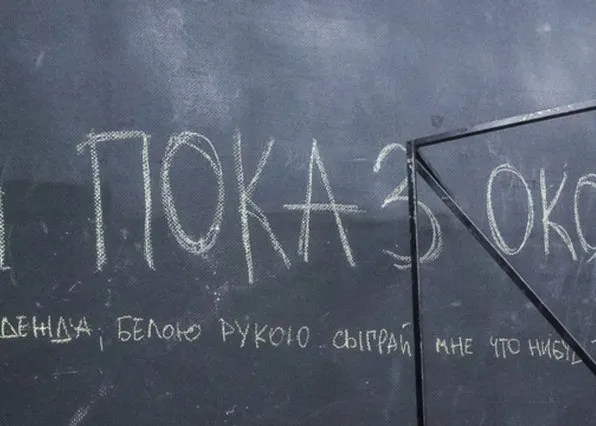 ПОКАЗ ОКО
ДЕЖДА, БЕЛОЮ РУКОЮ СЫГРАЙ МНЕ ЧТО НИБУД